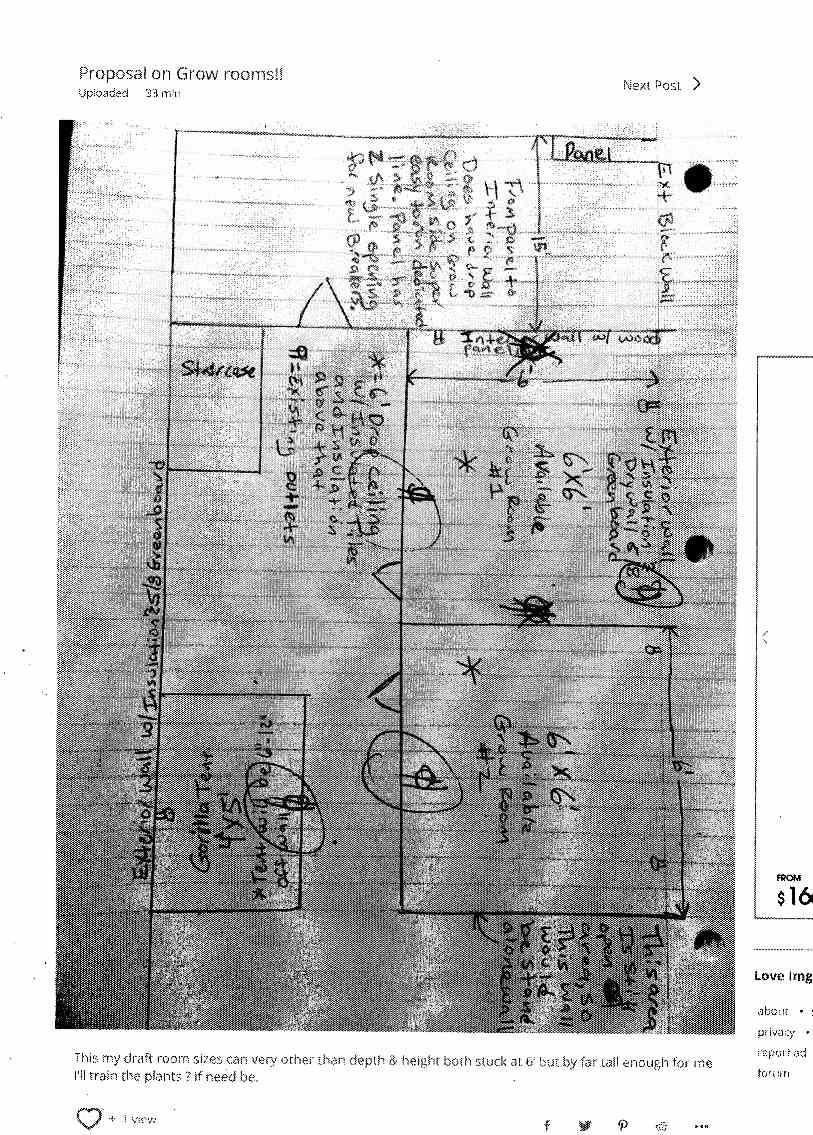 Proposal on Grow rooms!!
Uploaded 33 min
Next Post
Panel
Ext Block Wall
15'
From panel to
Interior Wall
Does have drop
Ceiling on Grow
Room side super
easy to run dedicated
line. Panel has
2 Single opening
for new Breakers.
wall w/ wood
panel
6'
Staircase
*=6' Drop Ceiling
w/ Insulated Tiles
and Insulation
above that
=Existing outlets
Exterior wall
w/ Insulation
Drywall 5/8
Greenboard
6'X6'
Available
Grow Room
#1
*
6' X 6'
Available
Grow Room
#2
*
6'
Exterior Wall w/ Insulation 5/8 Greenboard
Gorilla Tent
4X5'
*Tent will be 6"-12"
off wall
This area
Is still
open
area, so
This wall
would
be stand
alone wall
This my draft room sizes can very other than depth & height both stuck at 6' but by far tall enough for me
I'll train the plants ? if need be.
+ 1 view
FROM
$16
Love Img
about •
privacy •
report ad
forum